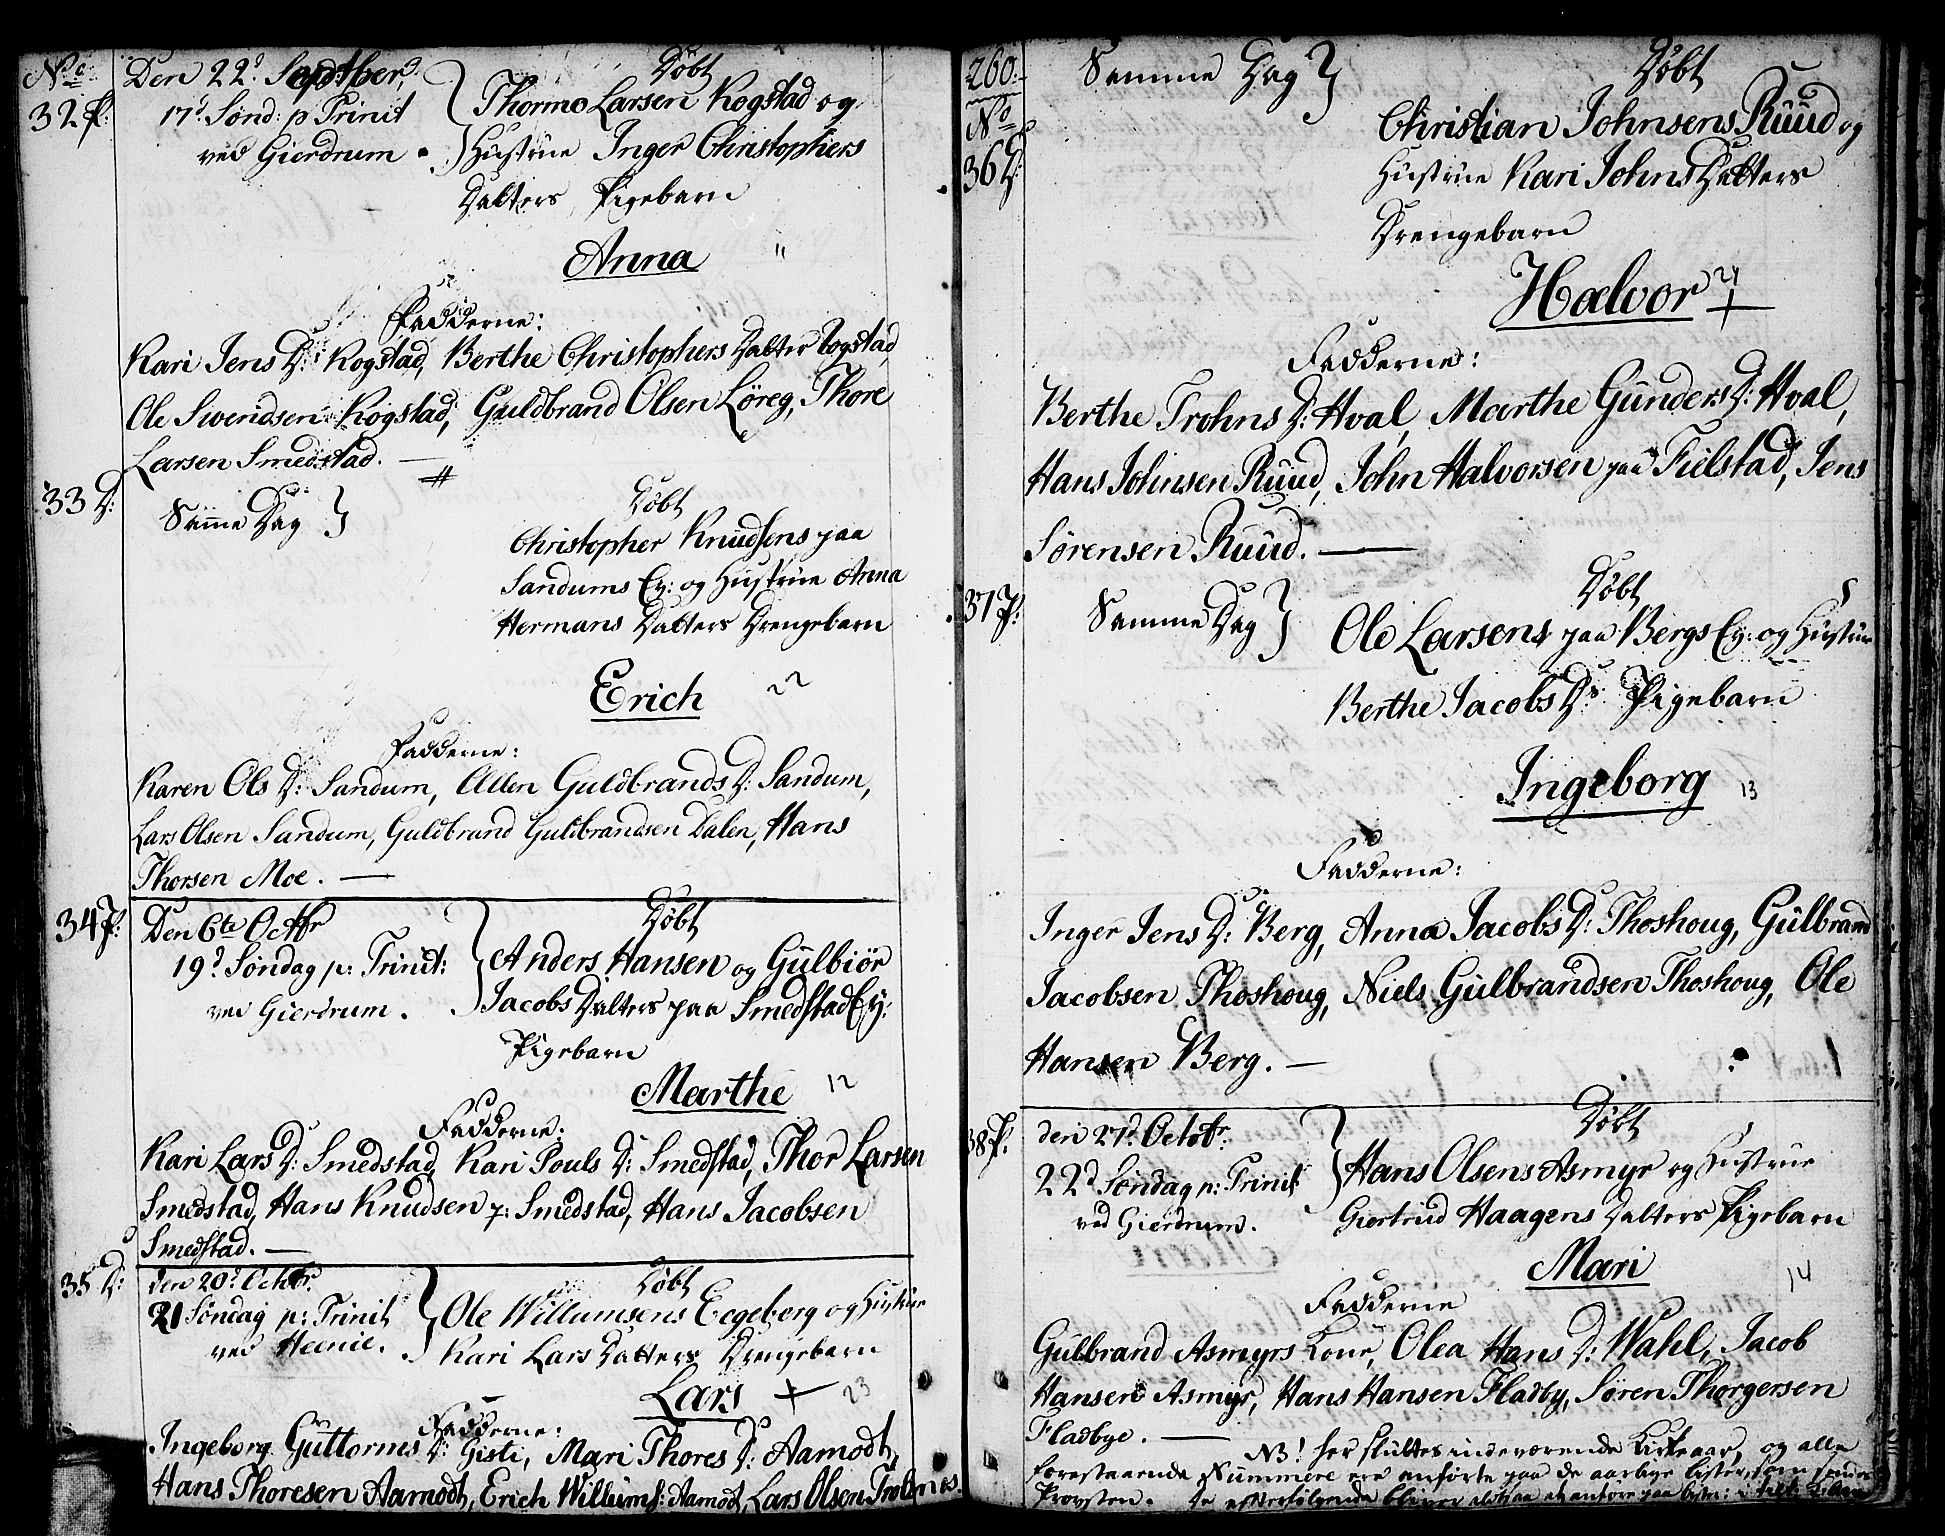 No
32 P:
Den 22d Septber,
17d Sønd: p Trinit
ved Gierdrum.
Døbt
Thormo Larsen Kogstad og
Hustrue Inger Christophers
Datters Pigebarn
Anna "
Fadderne:
Kari Jens D: Kogstad, Berthe Christophers Datter Kogstad,
Ole Svendsen Kogstad, Guldbrand Olsen Løreg, Thore
Larsen Smedstad. —
33 D:
Samme Dag
Døbt
Christopher Knudsens paa
Sandums Ey: og Hustrue Anna
Hermans Datters Drengebarn
Erich 22
Fadderne:
Karen Ols D: Sandum, Allen Guldbrands D: Sandum,
Lars Olsen Sandum, Guldbrand Guldbrandsen Dalen, Hans
Thorsen Moe. —
34 P:
Den 6te Octbr
19d Søndag p: Trinit:
ved Gierdrum.
Døbt
Anders Hansen og Gulbiør
Jacobs Datters paa Smedstad Ey:
Pigebarn
Marthe 12
Fadderne:
Kari Lars D: Smedstad, Kari Pouls D: Smedstad, Thor Larsen
Smedstad, Hans Knudsen p: Smedstad, Hans Jacobsen
Smedstad. —
35 D:
den 20d Octbr.
21 Søndag p: Trinit
ved Heenie.
Døbt
Ole Willumsens Ecgeberg og Hustrue
Kari Lars Datters Drengebarn
Lars + 23
Fadderne:
Ingeborg Guttorms D: Gisti, Mari Thores D: Aamodt,
Hans Thoresen Aamodt, Erich Willums: Aamodt, Lars Olsen
260.
No
36 D:
Samme Dag
Døbt
Christian Johnsens Ruud og
Hustrue Kari Johns Datters
Drengebarn
Halvor 24 +
Fadderne:
Berthe Trohns D: Hval, Marthe Gunders D: Hval,
Hans Johnsen Ruud, John Halvorsen paa Fielstad, Jens
Sørensen Ruud. —
37 P:
Samme Dag
Døbt
Ole Larsens paa Bergs Ey: og Hustrue
Berthe Jacobs Ds Pigebarn
Ingeborg 13
Fadderne:
Inger Jens D: Berg, Anna Jacobs D: Thoshoug, Gulbrand
Jacobsen Thoshoug, Niels Gulbrandsen Thoshoug, Ole
Hansen Berg. —
38 P:
den 27d Octobr.
22d Søndag p: Trinit
ved Gierdrum.
Døbt
Hans Olsens Asmyr og Hustrue
Giertrud Haagens Datters Pigebarn
Mari 14
Fadderne
Gulbrand Asmyrs Kone, Olea Hans D: Wahl, Jacob
Hansen Asmyr, Hans Hansen Fladby, Søren Thorgersen
Fladbye. —
NB! her sluttes indeværende Kirkeaar, og alle
forestaaende Nummere ere anførte paa de aarlige lister, som sendes
Provsten. De efterfølgende bliver altsaa at anføre paa